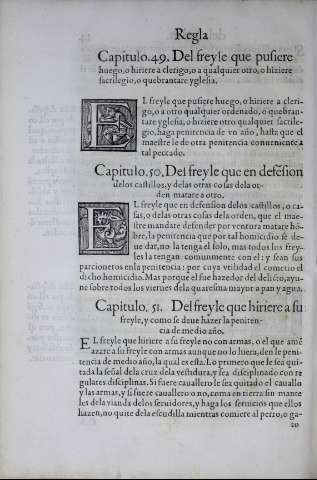 Regla
Capitulo.49. Del freyle que pusiere
huego, o hiriere a clerigo, o a qualquier otro, o hiziere
sacrilegio, o quebrantare yglesia.
EL freyle que pusiere huego, o hiriere a cleri-
go, o a otro qualquier ordenado, o quebran-
tare yglesia, o hiziere otro qualquier sacrile-
gio, haga penitencia de vn año, hasta que el
maestre le de otra penitencia conueniente a
tal peccado.
Capitulo.50. Del freyle que en defēsion
delos castillos, y delas otras cosas dela or-
den matare a otro.
EL freyle que en defension delos castillos, o ca-
sas, o delas otras cosas dela orden, que el mae-
stre mandare defender por ventura matare hō-
bre, la penitencia que por tal homicidio se de-
ue dar, no la tenga el solo, mas todos los frey-
les la tengan comunmente con el: y sean sus
parcioneros enla penitencia: por cuya vtilidad el cometio el
dicho homicidio. Mas porque el fue hazedor del delicto, ayu-
ne sobre todos los viernes dela quaresma mayor a pan y agua.
Capitulo. 51. Del freyle que hiriere a su
freyle, y como se deue hazer la peniten-
cia de medio año.
EL freyle que hiriere a su freyle no con armas, o el que amē
azare a su freyle con armas aunque no lo hiera, den le peni-
tencia de medio año, la qual es esta. Lo primero que le sea qui-
tada la señal dela cruz dela vestidura, y sea disciplinado con re
gulares disciplinas. Si fuere cauallero le sea quitado el cauallo
y las armas, y si fuere cauallero o no, coma en tierra sin mante
les dela vianda delos seruidores, y haga los seruicios que ellos
hazen, no quite dela escudilla mientras comiere al perro, o ga-
to